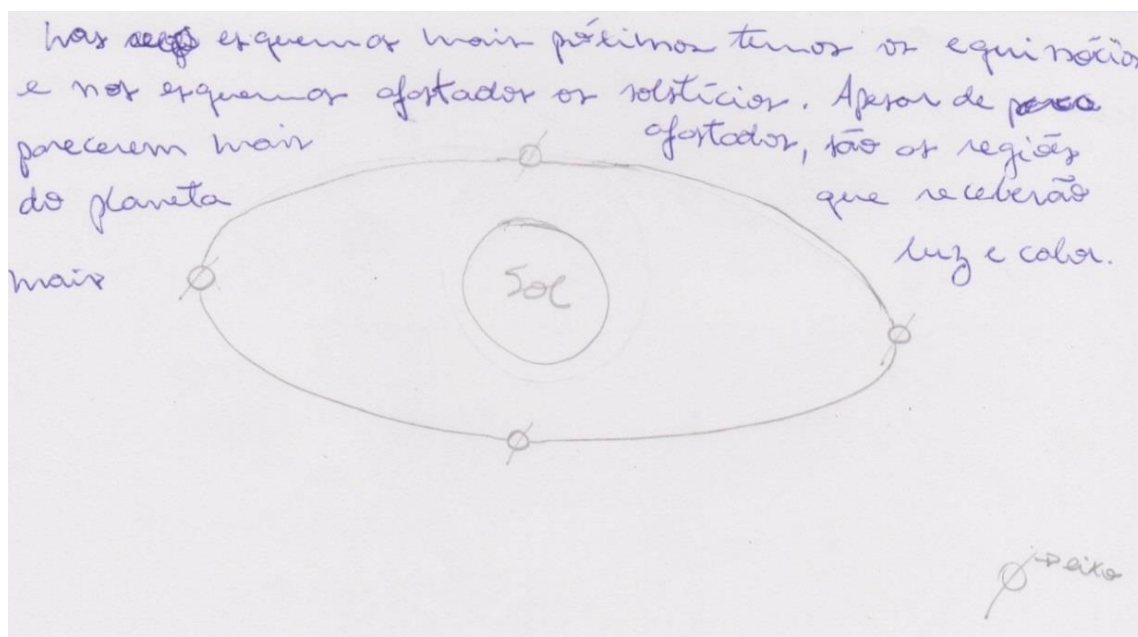 nos esquemas mais próximos temos os equinócios
e nos esquemas afastados os solstícios. Apesar de
parecerem mais afastados, são as regiões
do planeta que receberão
mais luz e calor.
Sol
eixo